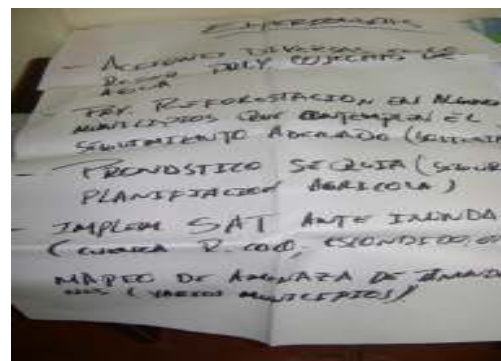 EXPERIENCIAS
- ACCIONES DIVERSAS
AGUA
- PRY. REFORESTACION EN ALGUNOS
MUNICIPIOS QUE CONTEMPLEN EL
SEGUIMIENTO ADECUADO
- PRONOSTICO SEQUIA (
PLANIFIACION AGRICOLA)
- IMPLEM SAT ANTE INUNDA
(CUENCA R. COCO, ESCONDIDO,
MAPEO DE AMENAZA DE INUNDA
NES (VARIOS MUNICIPIOS)